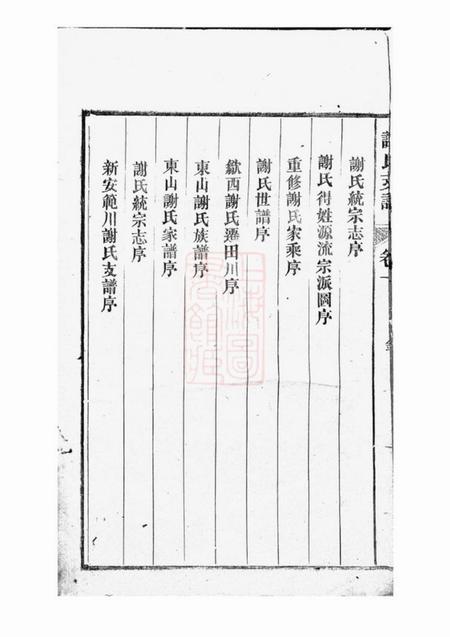 謝氏支譜 卷一
謝氏統宗志序
謝氏得姓源流宗派圖序
重修謝氏家乘序
謝氏世譜序
歙西謝氏遷田川序
東山謝氏族譜序
東山謝氏家譜序
謝氏統宗志序
新安範川謝氏支譜序